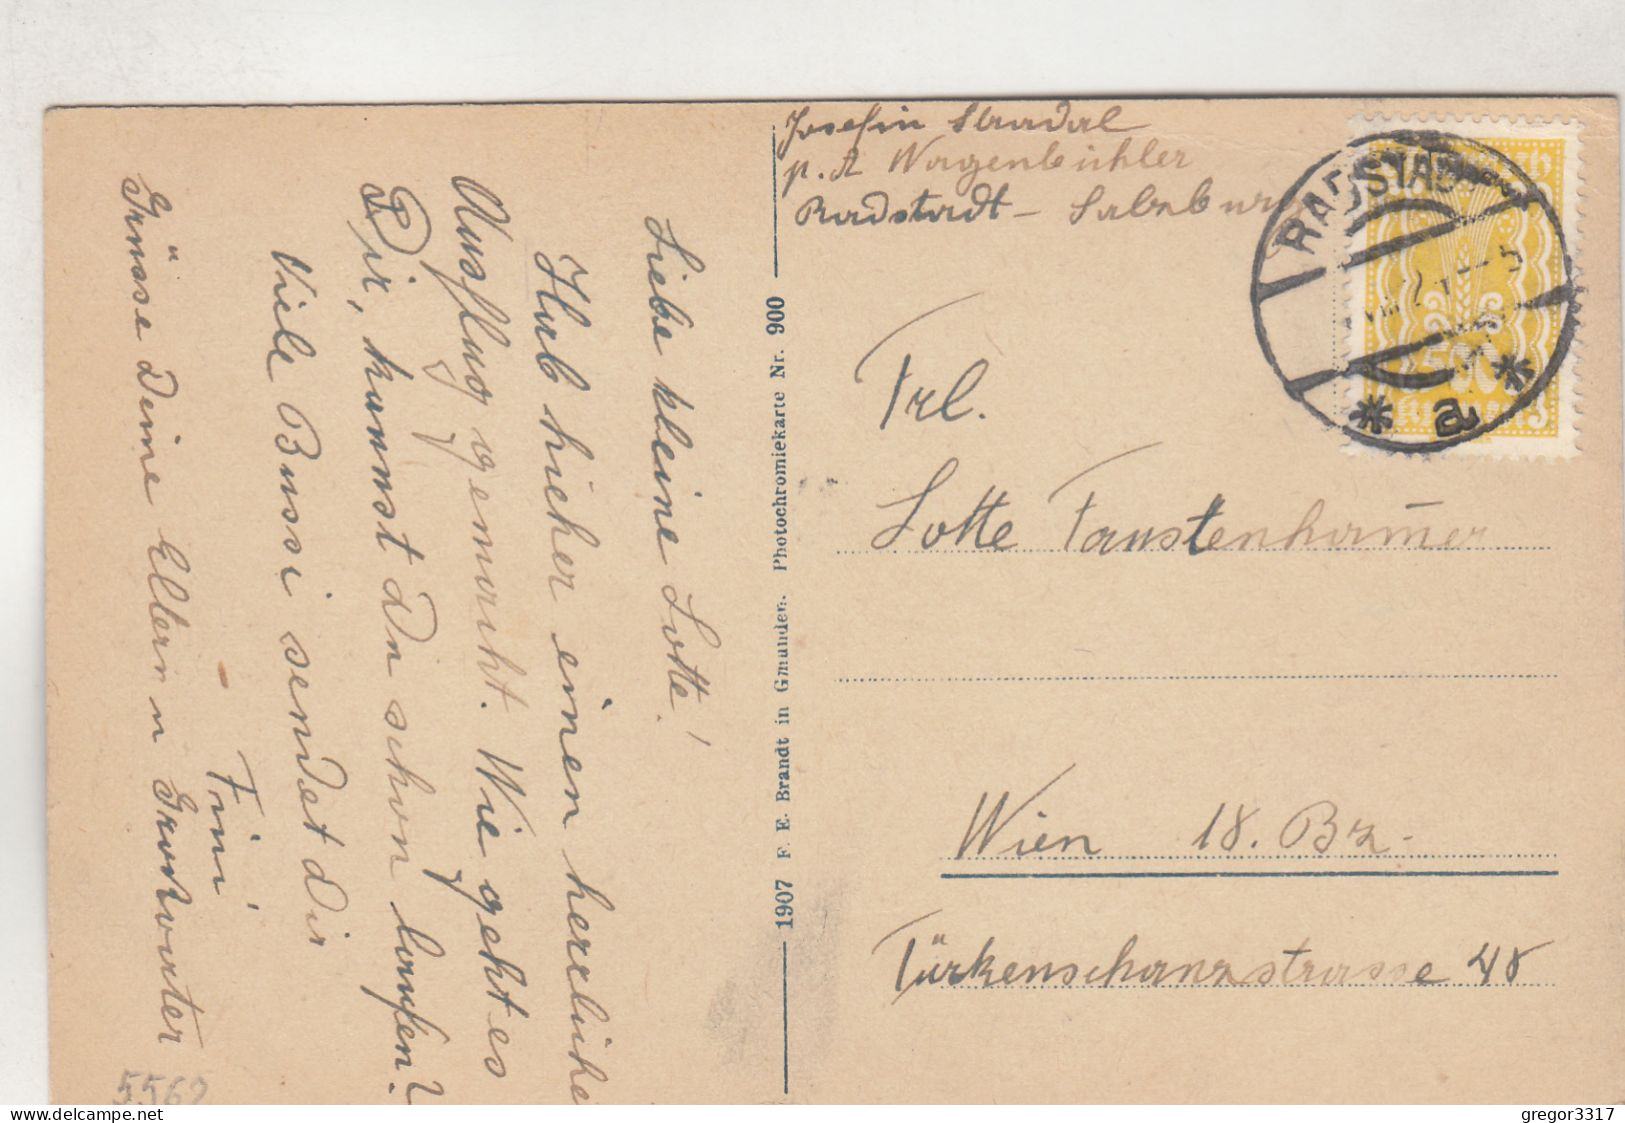 Josefin Stradal
p. A Wagenbichler
Radstadt - Salzburg
RADSTADT
5
* a *
500
Liebe kleine Lotte!
Hab hieher einen herrliche
Ausflug gemacht. Wie geht es
Dir, kannst Du schon laufen?
Viele Bussi sendet dir
Fini
Grüsse Deine Eltern u Grossvater
1907 F. E. Brandt in Gmunden. Photochromiekarte Nr. 900
Frl.
Lotte Faustenham̄er
Wien 18. Bz.
Türkenschanzstrasse 48
5562
gregor3317